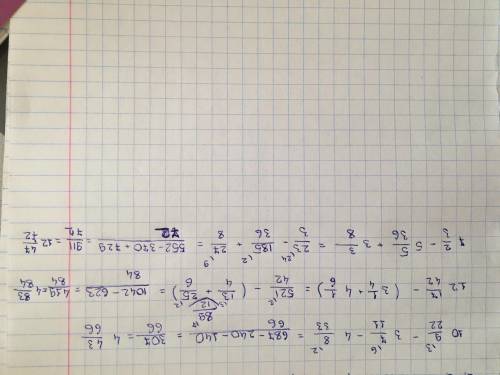 10 9/22 - 3 7/11 - 4 8/33 = (687 - 240 - 140)/66 = 307/66 = 4 43/66
12 17/42 - (3 1/4 + 4 1/6) = 521/42 - (13/4 + 25/6) = (1042 - 623)/84 = 419/84 = 4 83/84
89/12
7 2/3 - 5 5/36 + 3 3/8 = 23/3 - 185/36 + 27/8 = (552 - 370 + 729)/72 = 911/72 = 12 47/72